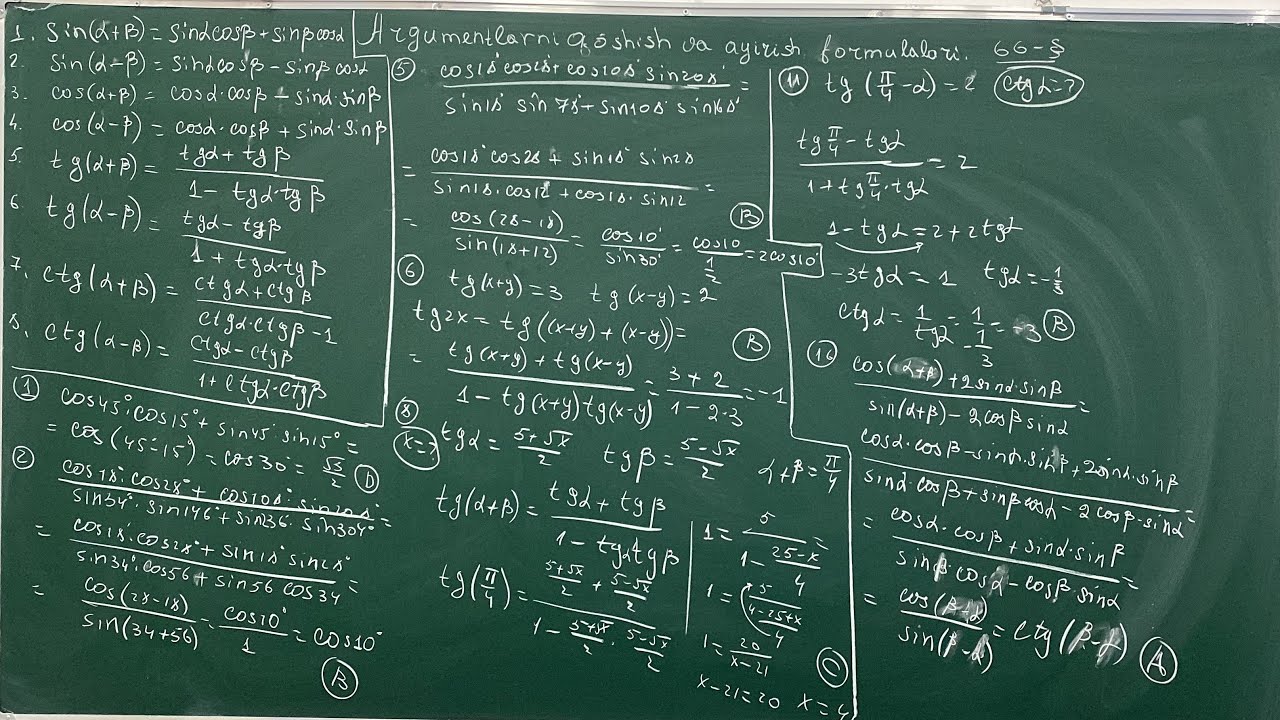 Argumentlarni qo'shish va ayirish formulalari. 66-§
1. sin(α+β) = sinαcosβ + sinβcosα
2. sin(α-β) = sinαcosβ - sinβcosα
3. cos(α+β) = cosα·cosβ - sinα·sinβ
4. cos(α-β) = cosα·cosβ + sinα·sinβ
5. tg(α+β) = (tgα + tgβ)/(1 - tgα·tgβ)
6. tg(α-β) = (tgα - tgβ)/(1 + tgα·tgβ)
7. ctg(α+β) = (ctgα + ctgβ)/(ctgα·ctgβ - 1)
8. ctg(α-β) = (ctgα - ctgβ)/(1 + ctgα·ctgβ)
① cos45°·cos15° + sin45°·sin15° =
= cos(45-15) = cos30° = √3/2 Ⓓ
② (cos18°·cos28° + cos108°·sin208°)/(sin34°·sin146° + sin236°·sin304°) =
= (cos18°·cos28° + sin18° sin28°)/(sin34°·cos56 + sin56 cos34) =
= cos(28-18)/sin(34+56) = cos10°/1 = cos10°
Ⓑ
⑤ (cos18° cos28° + cos108° sin208°)/(sin18° sin78° + sin108° sin168°) =
= (cos18° cos28 + sin18° sin28)/(sin18·cos12 + cos18·sin12) =
= cos(28-18)/sin(18+12) = cos10°/sin30° = cos10/(1/2) = 2cos10° Ⓑ
⑥ tg(x+y) = 3 tg(x-y) = 2
tg2x = tg((x+y) + (x-y)) =
= (tg(x+y) + tg(x-y))/(1 - tg(x+y)tg(x-y)) = (3+2)/(1-2·3) = -1 Ⓑ
⑧ x=? tgα = (5+√x)/2 tgβ = (5-√x)/2 α+β = π/4
tg(α+β) = (tgα + tgβ)/(1 - tgαtgβ)
tg(π/4) = ((5+√x)/2 + (5-√x)/2)/(1 - (5+√x)/2 · (5-√x)/2)
1 = 5/(1 - (25-x)/4) =
1 = 5/((4-25+x)/4)
1 = 20/(x-21)
x-21=20 x=4 Ⓒ
⑪ tg(π/4 - α) = 2 ctgα=?
(tg π/4 - tgα)/(1 + tg π/4·tgα) = 2
1 - tgα = 2 + 2tgα
-3tgα = 1 tgα = -1/3
ctgα = 1/tgα = 1/(-1/3) = -3 Ⓑ
⑯ (cos(α+β) + 2sinα·sinβ)/(sin(α+β) - 2cosβ sinα) =
(cosα·cosβ - sinα·sinβ + 2sinα·sinβ)/(sinα·cosβ + sinβ cosα - 2cosβ·sinα)
= (cosα·cosβ + sinα·sinβ)/(sinβ·cosα - cosβ·sinα) =
= cos(β-α)/sin(β-α) = ctg(β-α) Ⓐ